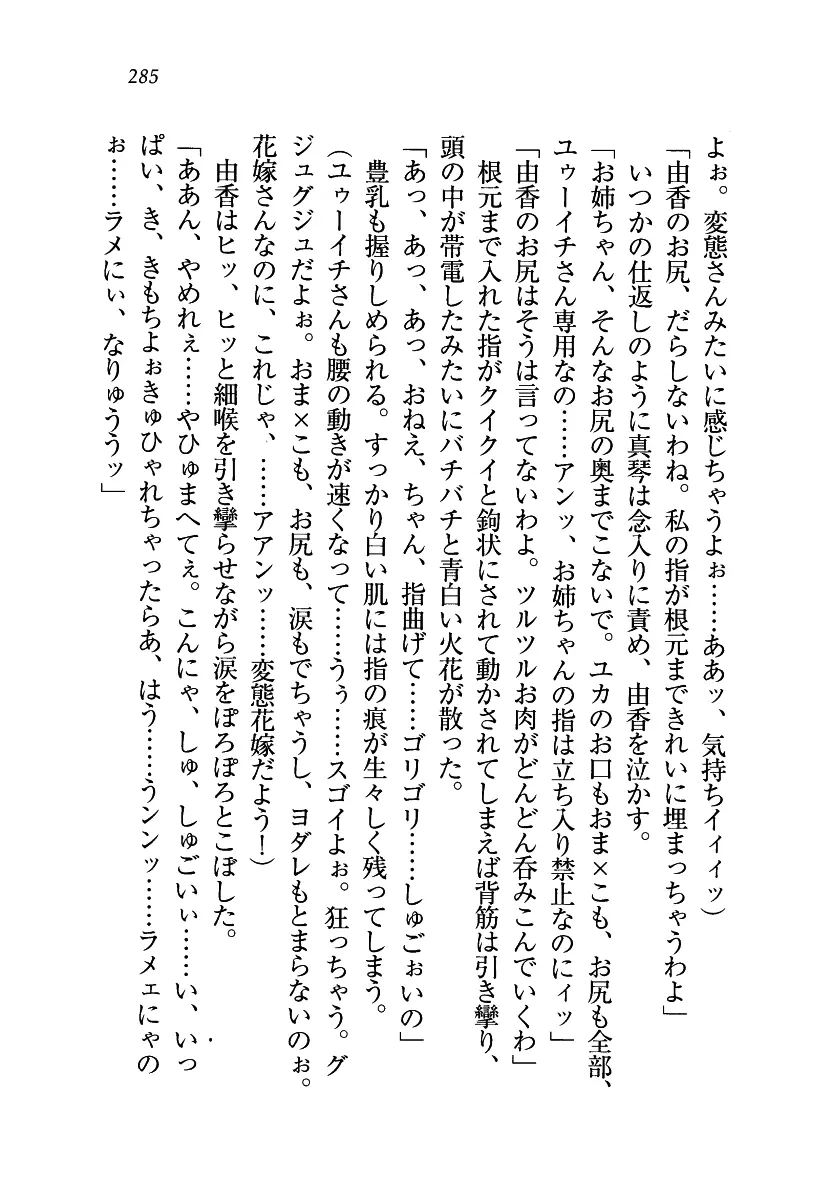 285
よぉ。変態さんみたいに感じちゃうよぉ……ああッ、気持ちイィィッ）
「由香のお尻、だらしないわね。私の指が根元まできれいに埋まっちゃうわよ」
いつかの仕返しのように真琴は念入りに責め、由香を泣かす。
「お姉ちゃん、そんなお尻の奥までこないで。ユカのお口もおま×こも、お尻も全部、
ユゥーイチさん専用なの……アンッ、お姉ちゃんの指は立ち入り禁止なのにィッ」
「由香のお尻はそうは言ってないわよ。ツルツルお肉がどんどん呑みこんでいくわ」
根元まで入れた指がクイクイと鉤状にされて動かされてしまえば背筋は引き攣り、
頭の中が帯電したみたいにバチバチと青白い火花が散った。
「あっ、あっ、あっ、おねえ、ちゃん、指曲げて……ゴリゴリ……しゅごぉいの」
豊乳も握りしめられる。すっかり白い肌には指の痕が生々しく残ってしまう。
（ユゥーイチさんも腰の動きが速くなって……うぅ……スゴイよぉ。狂っちゃう。グ
ジュグジュだよぉ。おま×こも、お尻も、涙もでちゃうし、ヨダレもとまらないのぉ。
花嫁さんなのに、これじゃ、……アアンッ……変態花嫁だよう！）
由香はヒッ、ヒッと細喉を引き攣らせながら涙をぽろぽろとこぼした。
「ああん、やめれぇ……やひゅまへてぇ。こんにゃ、しゅ、しゅごいぃ……い、いっ
ぱい、き、きもちよぉきゅひゃれちゃったらあ、はう……うンンッ……ラメェにゃの
ぉ……ラメにぃ、なりゅううッ」